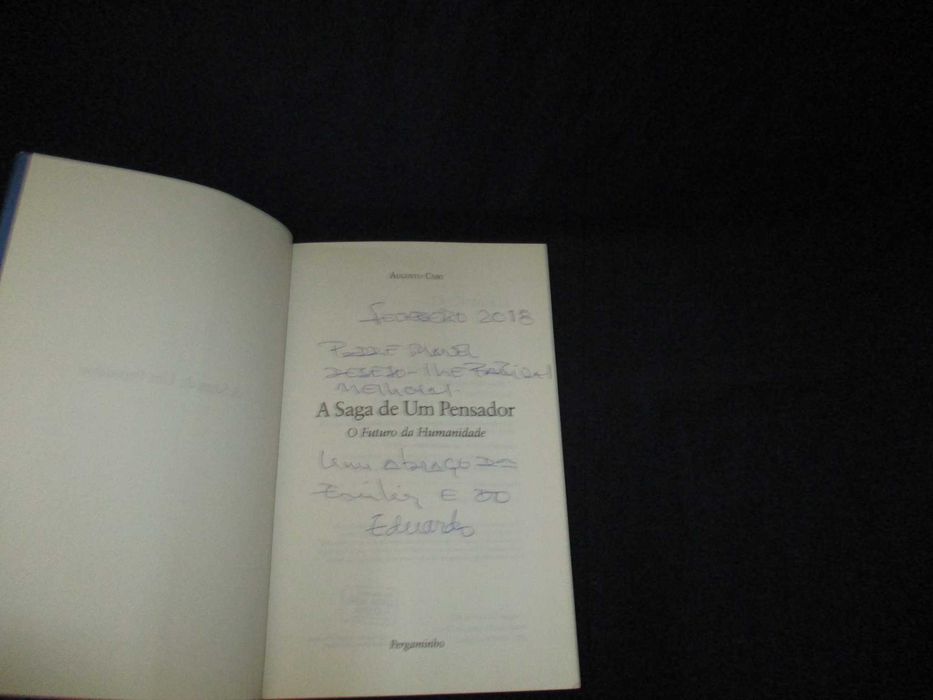 Augusto Cury
Fevereiro 2018
Padre
Desejo-lhe rápidas
melhoras.
A Saga de Um Pensador
O Futuro da Humanidade
Um abraço da
Emília e do
Eduardo
Pergaminho